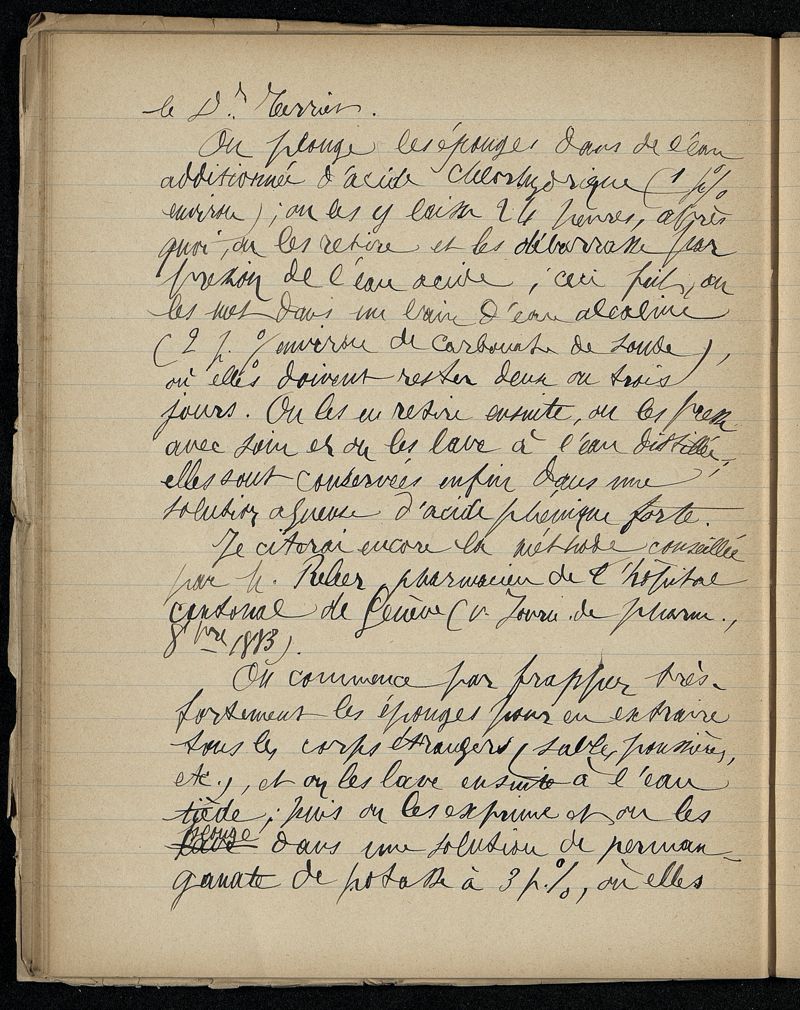 le Dr. Terrier.
On plonge les éponges dans de l'eau
additionnée d'acide chlorhydrique (1 p%
environ); on les y laisse 24 heures, après
quoi, on les retire et les débarrasse par
pression de l'eau acide; ceci fait, on
les met dans un bain d'eau alcaline
(2 p.% environ de carbonate de soude),
où elles doivent rester deux ou trois
jours. On les en retire ensuite, on les presse
avec soin et on les lave à l'eau distillée;
elles sont conservées enfin dans une
solution aqueuse d'acide phénique forte.
Je citerai encore la méthode conseillée
par M. pharmacien de l'hôpital
cantonal de Genève (v. Journ. de pharm.,
8bre 1883).
On commence par frapper très-
fortement les éponges pour en extraire
tous les corps étrangers (sables, poussières,
etc.), et on les lave ensuite à l'eau
tiède; puis on les exprime et on les
plonge
lave dans une solution de perman-
ganate de potasse à 3 p.%, où elles